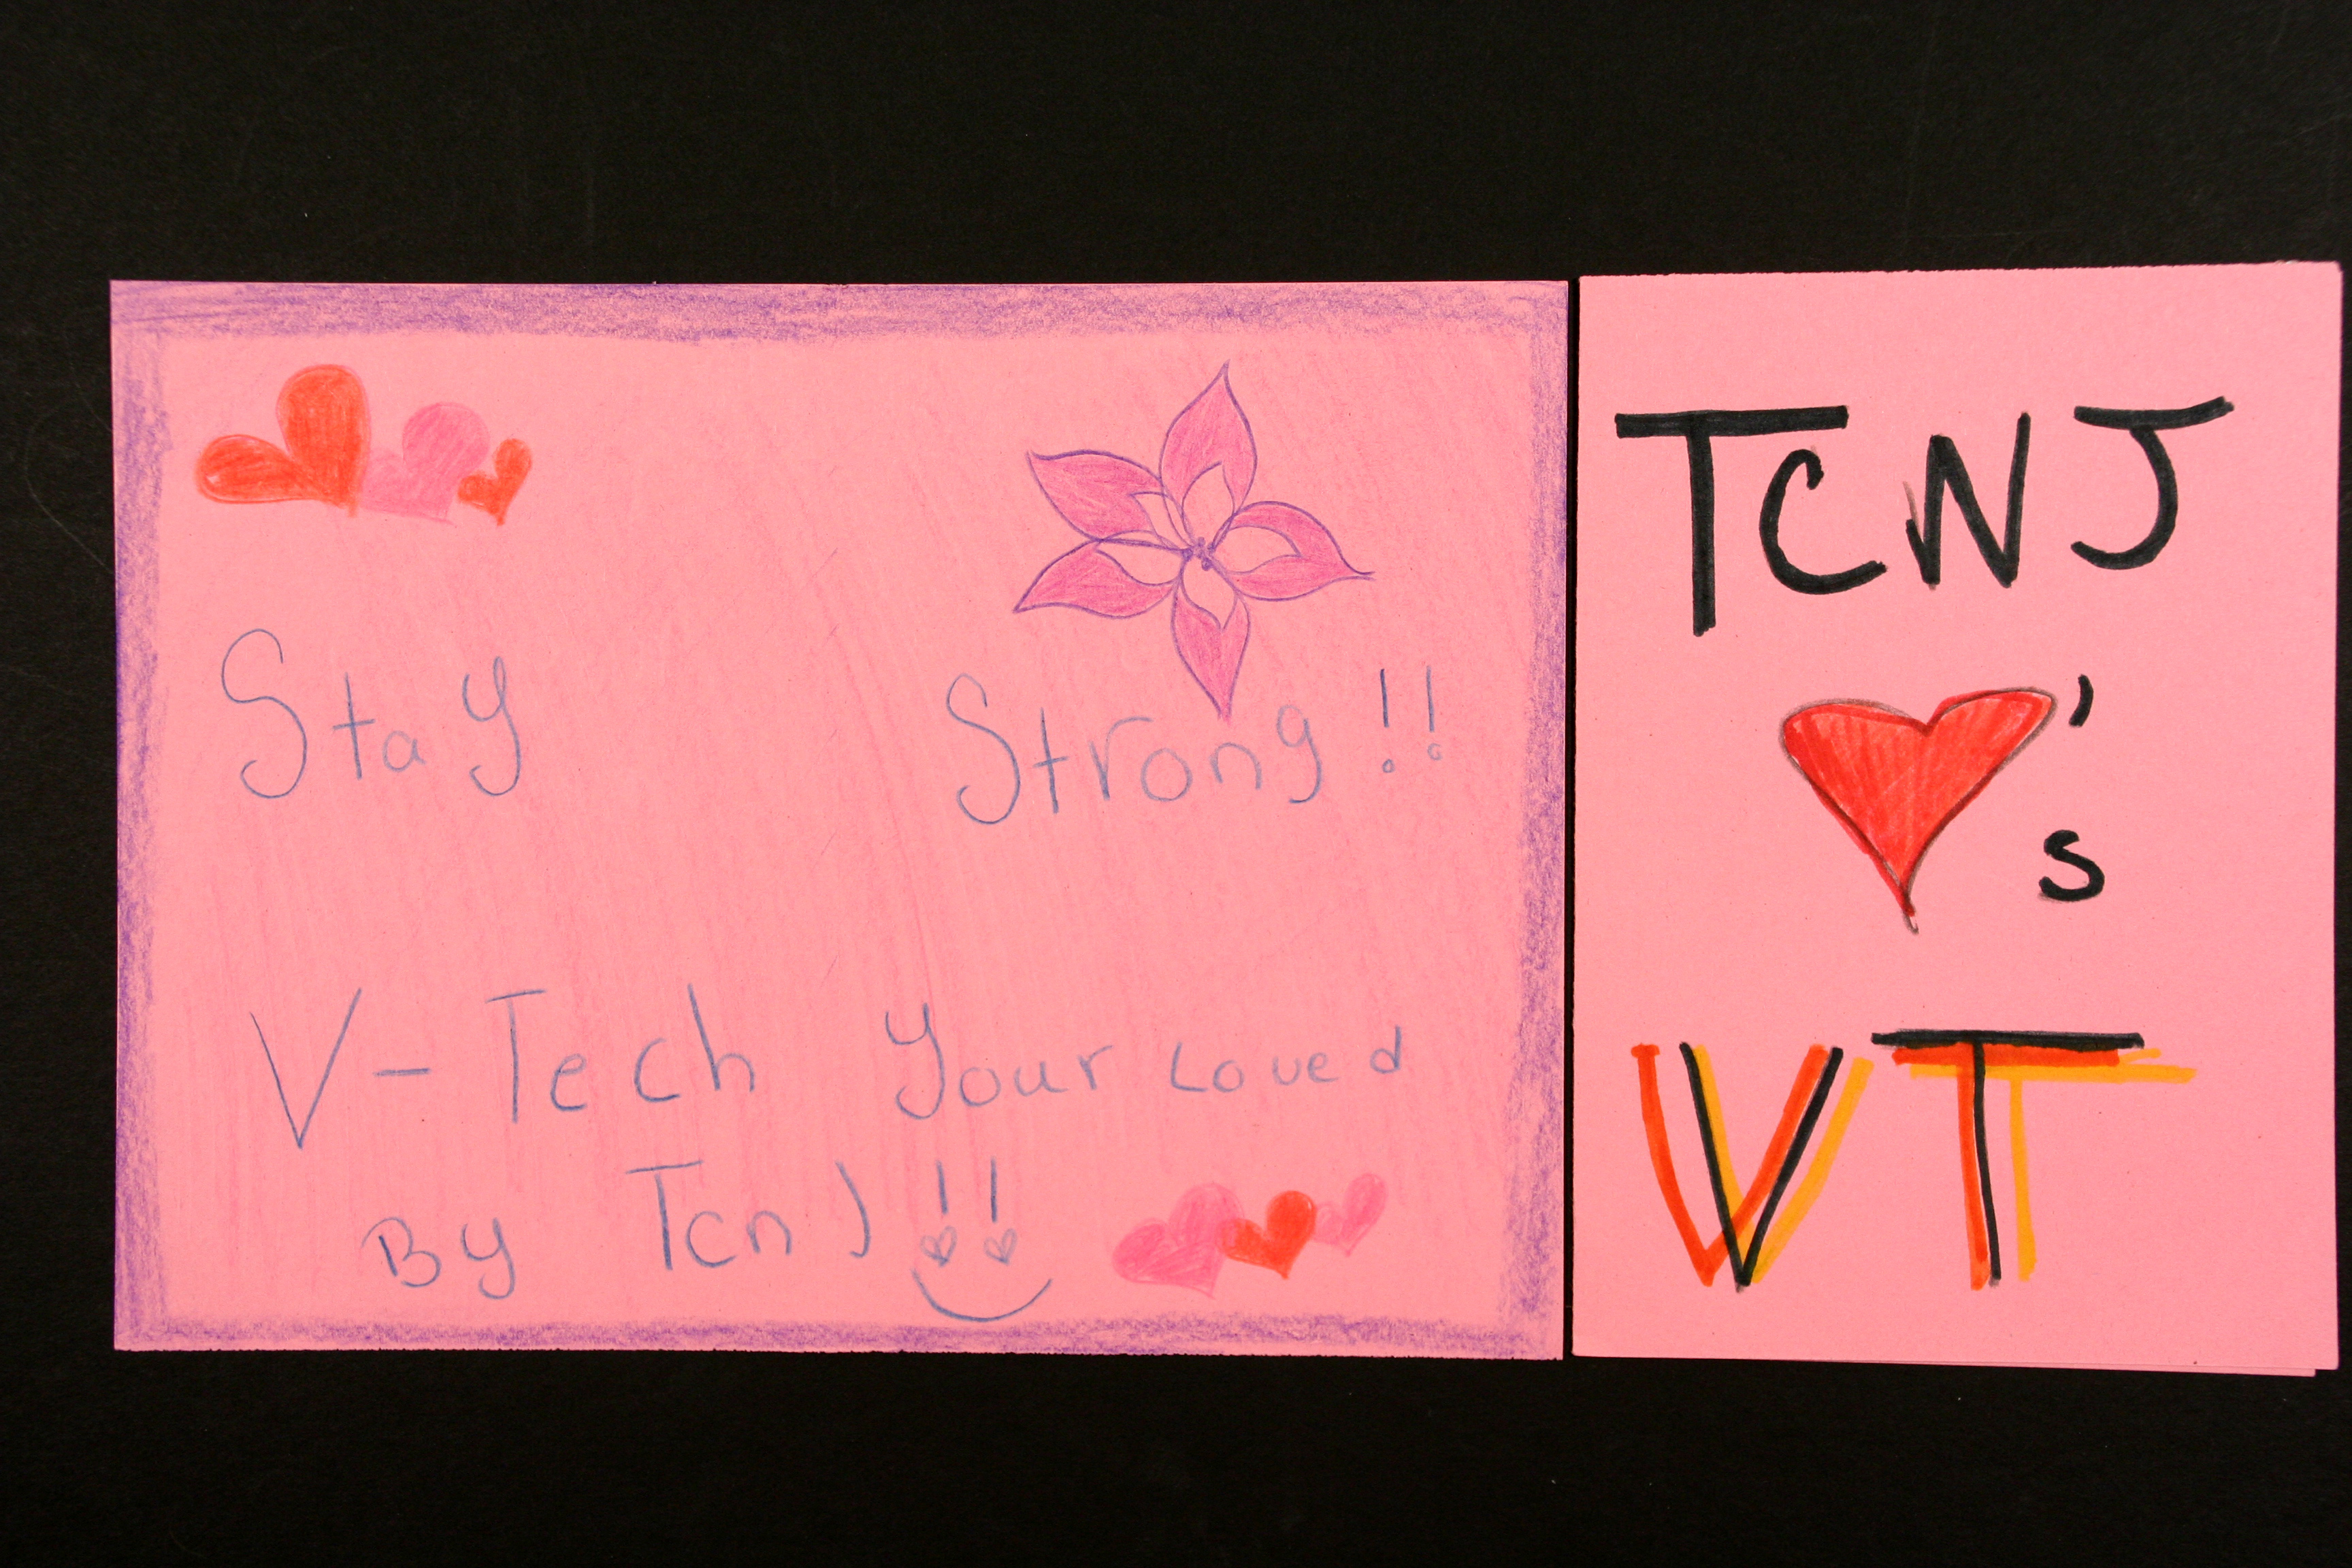 Stay Strong!!
V-Tech Your Loved
By TcnJ!!
TCNJ
♥'s
VT